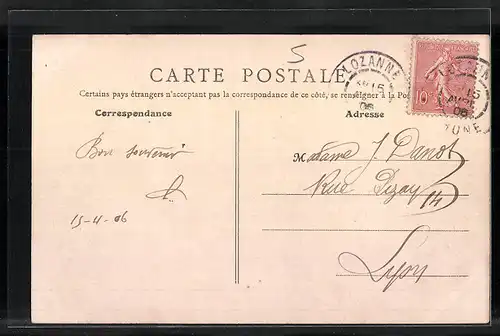 5
CARTE POSTALE
Certains pays étrangers n'acceptant pas la correspondance de ce côté, se renseigner à la Pos
Correspondance
Adresse
LOZANNE
15
06
10
15
AVRIL
06
Bon souvenir
15-4-06
Madame J.
Rue Dizay 14
Lyon